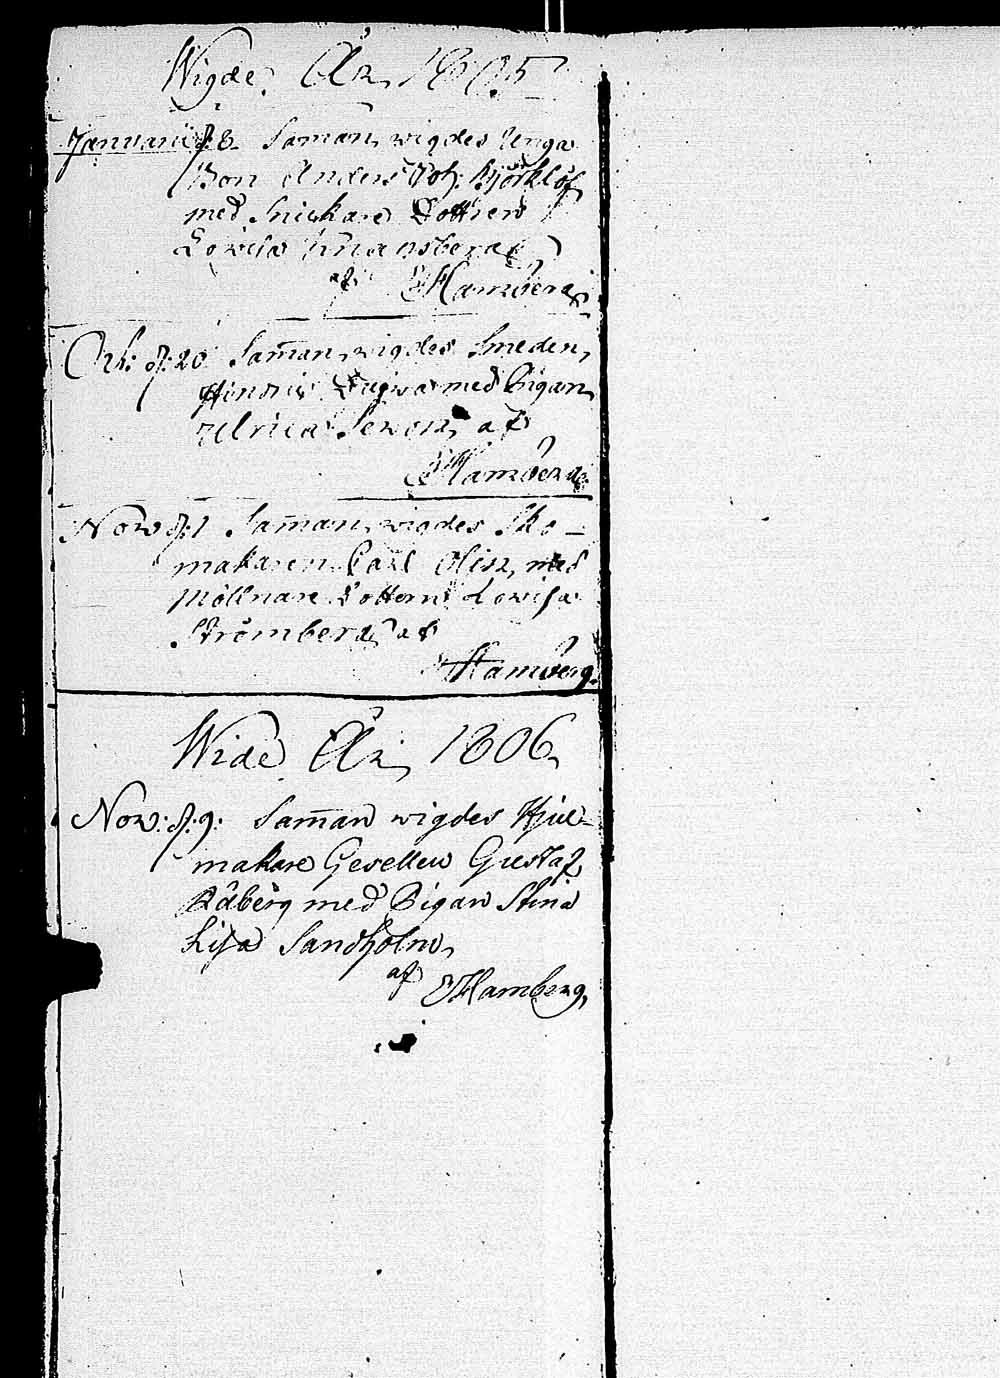 Wigde År 1805
Januarii d: 8. Samman wigdes Unga
Bon Anders Joh: Björklöf
med Snickare Dottren
Lowisa
af EHamberg
d: 20 Samman wigdes Smeden,
Hinric med Pigan
Ulrica af
EHamberg
Now d: 1 Samman wigdes Sko-
makaren Carl Olin, med
Möllnare Dottern Lowisa
Strömberg af
EHamberg.
Wide År 1806,
Now: d: 9: Samman wigdes Hjul-
makare Gesellen Gustaf
Rådberg med Pigan Stina
Lisa Sandholm,
af EHamberg,